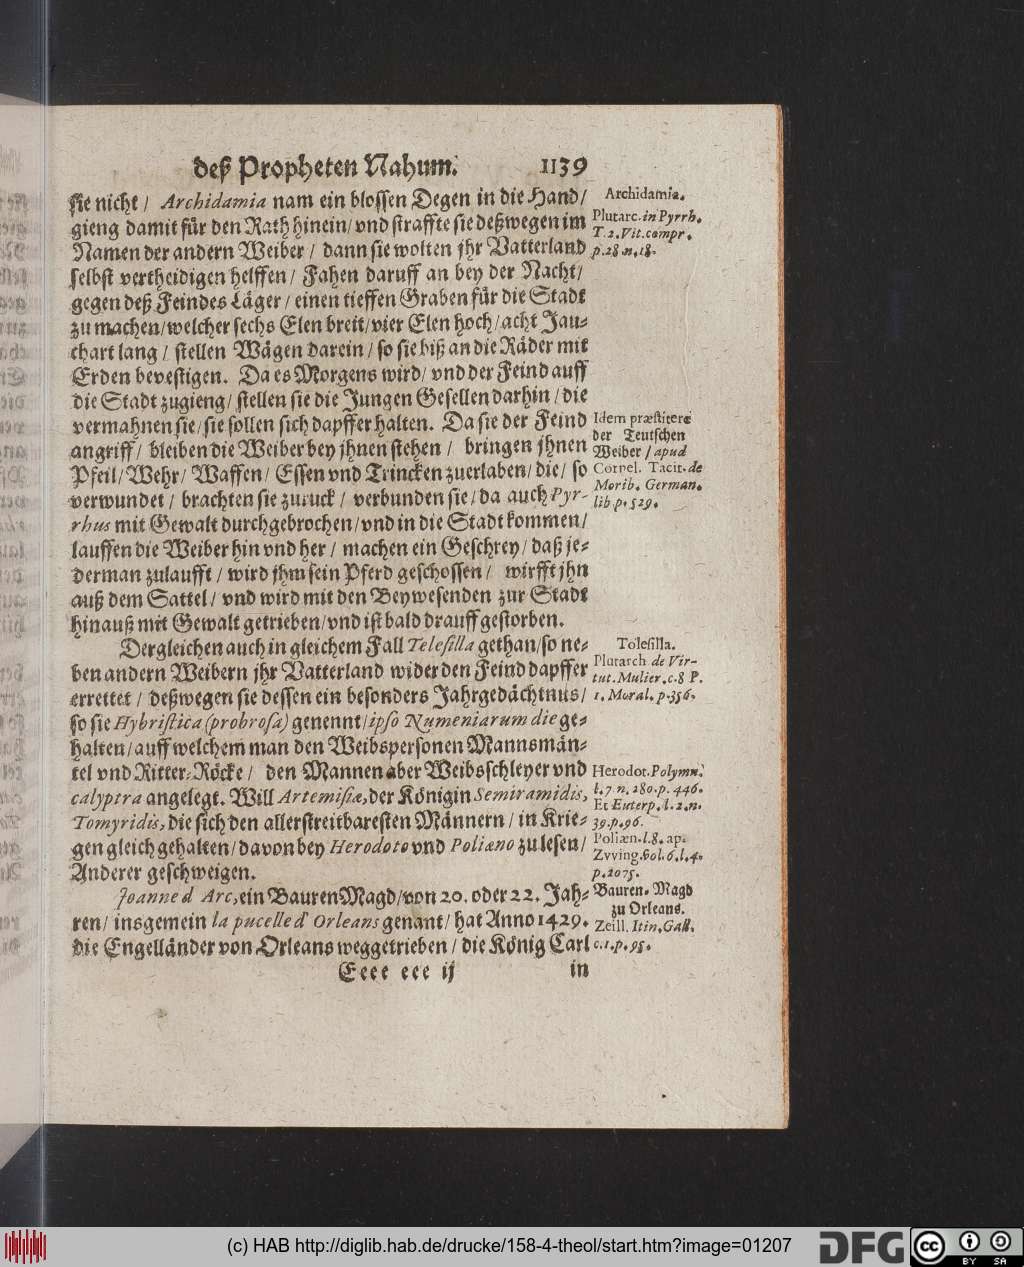 deß Propheten Nahum. 1139
sie nicht / Archidamia nam ein blossen Degen in die Hand /
gieng damit für den Rath hinein / vnd straffte sie deßwegen im
Namen der andern Weiber / dann sie wolten jhr Vatterland
selbst vertheidigen helffen / Fahen daruff an bey der Nacht /
gegen deß Feindes Läger / einen tieffen Graben für die Stadt
zu machen / welcher sechs Elen breit / vier Elen hoch / acht Jau-
chart lang / stellen Wägen darein / so sie biß an die Räder mit
Erden bevestigen. Da es Morgens wird / vnd der Feind auff
die Stadt zugieng / stellen sie die Jungen Gesellen darhin / die
vermahnen sie / sie sollen sich dapffer halten. Da sie der Feind
angriff / bleiben die Weiber bey jhnen stehen / bringen jhnen
Pfeil / Wehr / Waffen / Essen vnd Trincken zuerlaben / die / so
verwundet / brachten sie zuruck / verbunden sie / da auch Pyr-
rhus mit Gewalt durchgebrochen / vnd in die Stadt kommen /
lauffen die Weiber hin vnd her / machen ein Geschrey / daß je-
derman zulaufft / wird jhm sein Pferd geschossen / wirfft jhn
auß dem Sattel / vnd wird mit den Beywesenden zur Stadt
hinauß mit Gewalt getrieben / vnd ist bald drauff gestorben.
Dergleichen auch in gleichem Fall Telesilla gethan / so ne-
ben andern Weibern jhr Vatterland wider den Feind dapffer
errettet / deßwegen sie dessen ein besonders Jahrgedächtnus /
so sie Hybristica (probrosa) genennt / ipso Numeniarum die ge-
halten / auff welchem man den Weibspersonen Mannsmän-
tel vnd Ritter-Röcke / den Mannen aber Weibsschleyer vnd
calyptra angelegt. Will Artemisiæ, der Königin Semiramidis,
Tomyridis, die sich den allerstreitbaresten Männern / in Krie-
gen gleich gehalten / davon bey Herodoto vnd Poliæno zu lesen /
Anderer geschweigen.
Joanne d Arc, ein Bauren Magd / von 20. oder 22. Jah-
ren / insgemein la pucelle d' Orleans genant / hat Anno 1429.
die Engelländer von Orleans weggetrieben / die König Carl
Eeee eee ij in
Archidamia.
Plutarc. in Pyrrh.
T. 2. Vit. compr.
p. 28. n. 18.
Idem præstitere
der Teutschen
Weiber / apud
Cornel. Tacit. de
Morib. German.
lib. p. 529.
Tolesilla.
Plutarch de Vir-
tut. Mulier. c. 8 P.
1. Moral. p. 356.
Herodot. Polymn.
l. 7. n. 280. p. 446.
Et Euterp. l. 2. n.
39. p. 96.
Poliæn. l. 8. ap.
Zvving. vol. 6. l. 4.
p. 2075.
Bauren-Magd
zu Orleans.
Zeill. Itin. Gall.
c. 1. p. 95.
(c) HAB http://diglib.hab.de/drucke/158-4-theol/start.htm?image=01207
DFG
cc
BY SA